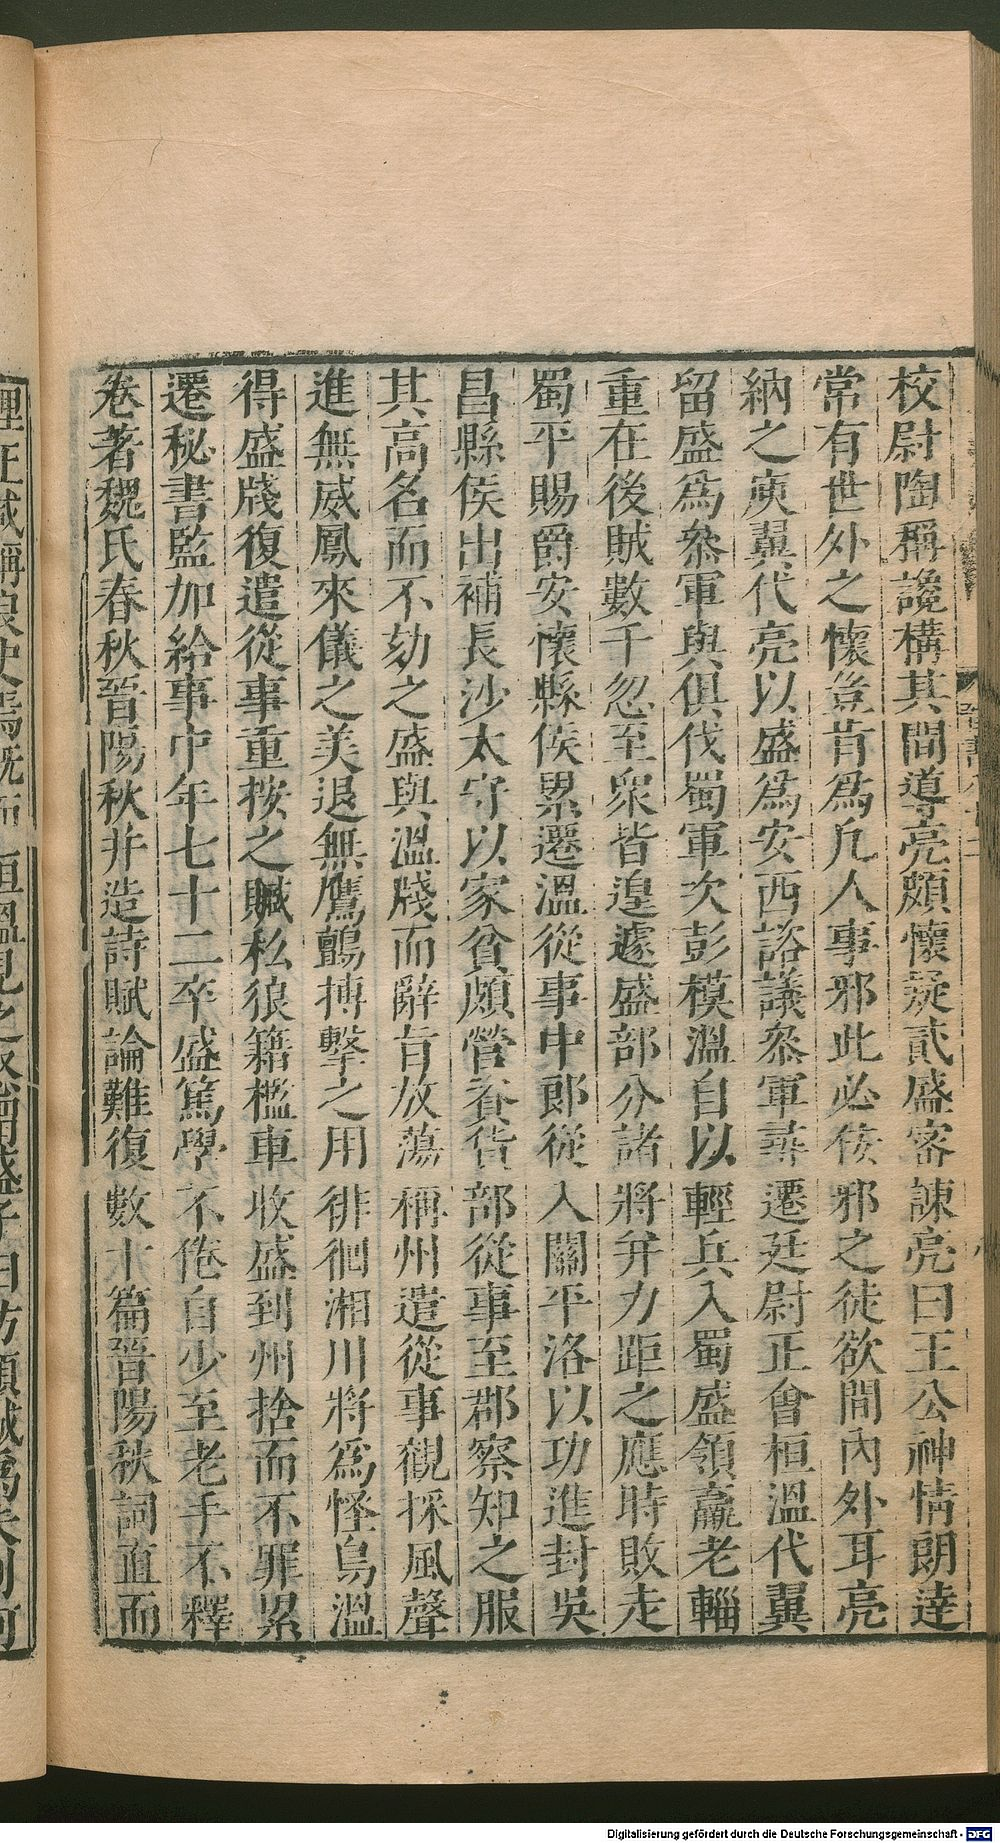 校尉陶稱讒構其間導亮頗懷疑貳盛密諫亮曰王公神情朗達
常有世外之懷豈肯爲凡人事邪此必佞邪之徒欲間內外耳亮
納之庾翼代亮以盛爲安西諮議參軍尋遷廷尉正會桓溫代翼
留盛爲參軍與俱伐蜀軍次彭模溫自以輕兵入蜀盛領羸老輜
重在後賊數千忽至衆皆遑遽盛部分諸將并力距之應時敗走
蜀平賜爵安懷縣侯累遷溫從事中郎從入關平洛以功進封吳
昌縣侯出補長沙太守以家貧頗營資貨部從事至郡察知之服
其高名而不劾之盛與溫牋而辭旨放蕩稱州遣從事觀採風聲
進無威鳳來儀之美退無鷹鸇搏擊之用徘徊湘川將爲怪鳥溫
得盛牋復遣從事重按之贓私狼籍檻車收盛到州捨而不罪累
遷秘書監加給事中年七十二卒盛篤學不倦自少至老手不釋
卷著魏氏春秋晉陽秋并造詩賦論難復數十篇晉陽秋詞直而
Digitalisierung gefördert durch die Deutsche Forschungsgemeinschaft - DFG